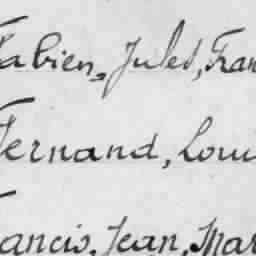 Fabien, Jules, Fran
Fernand, Loui
Francis, Jean, Mar